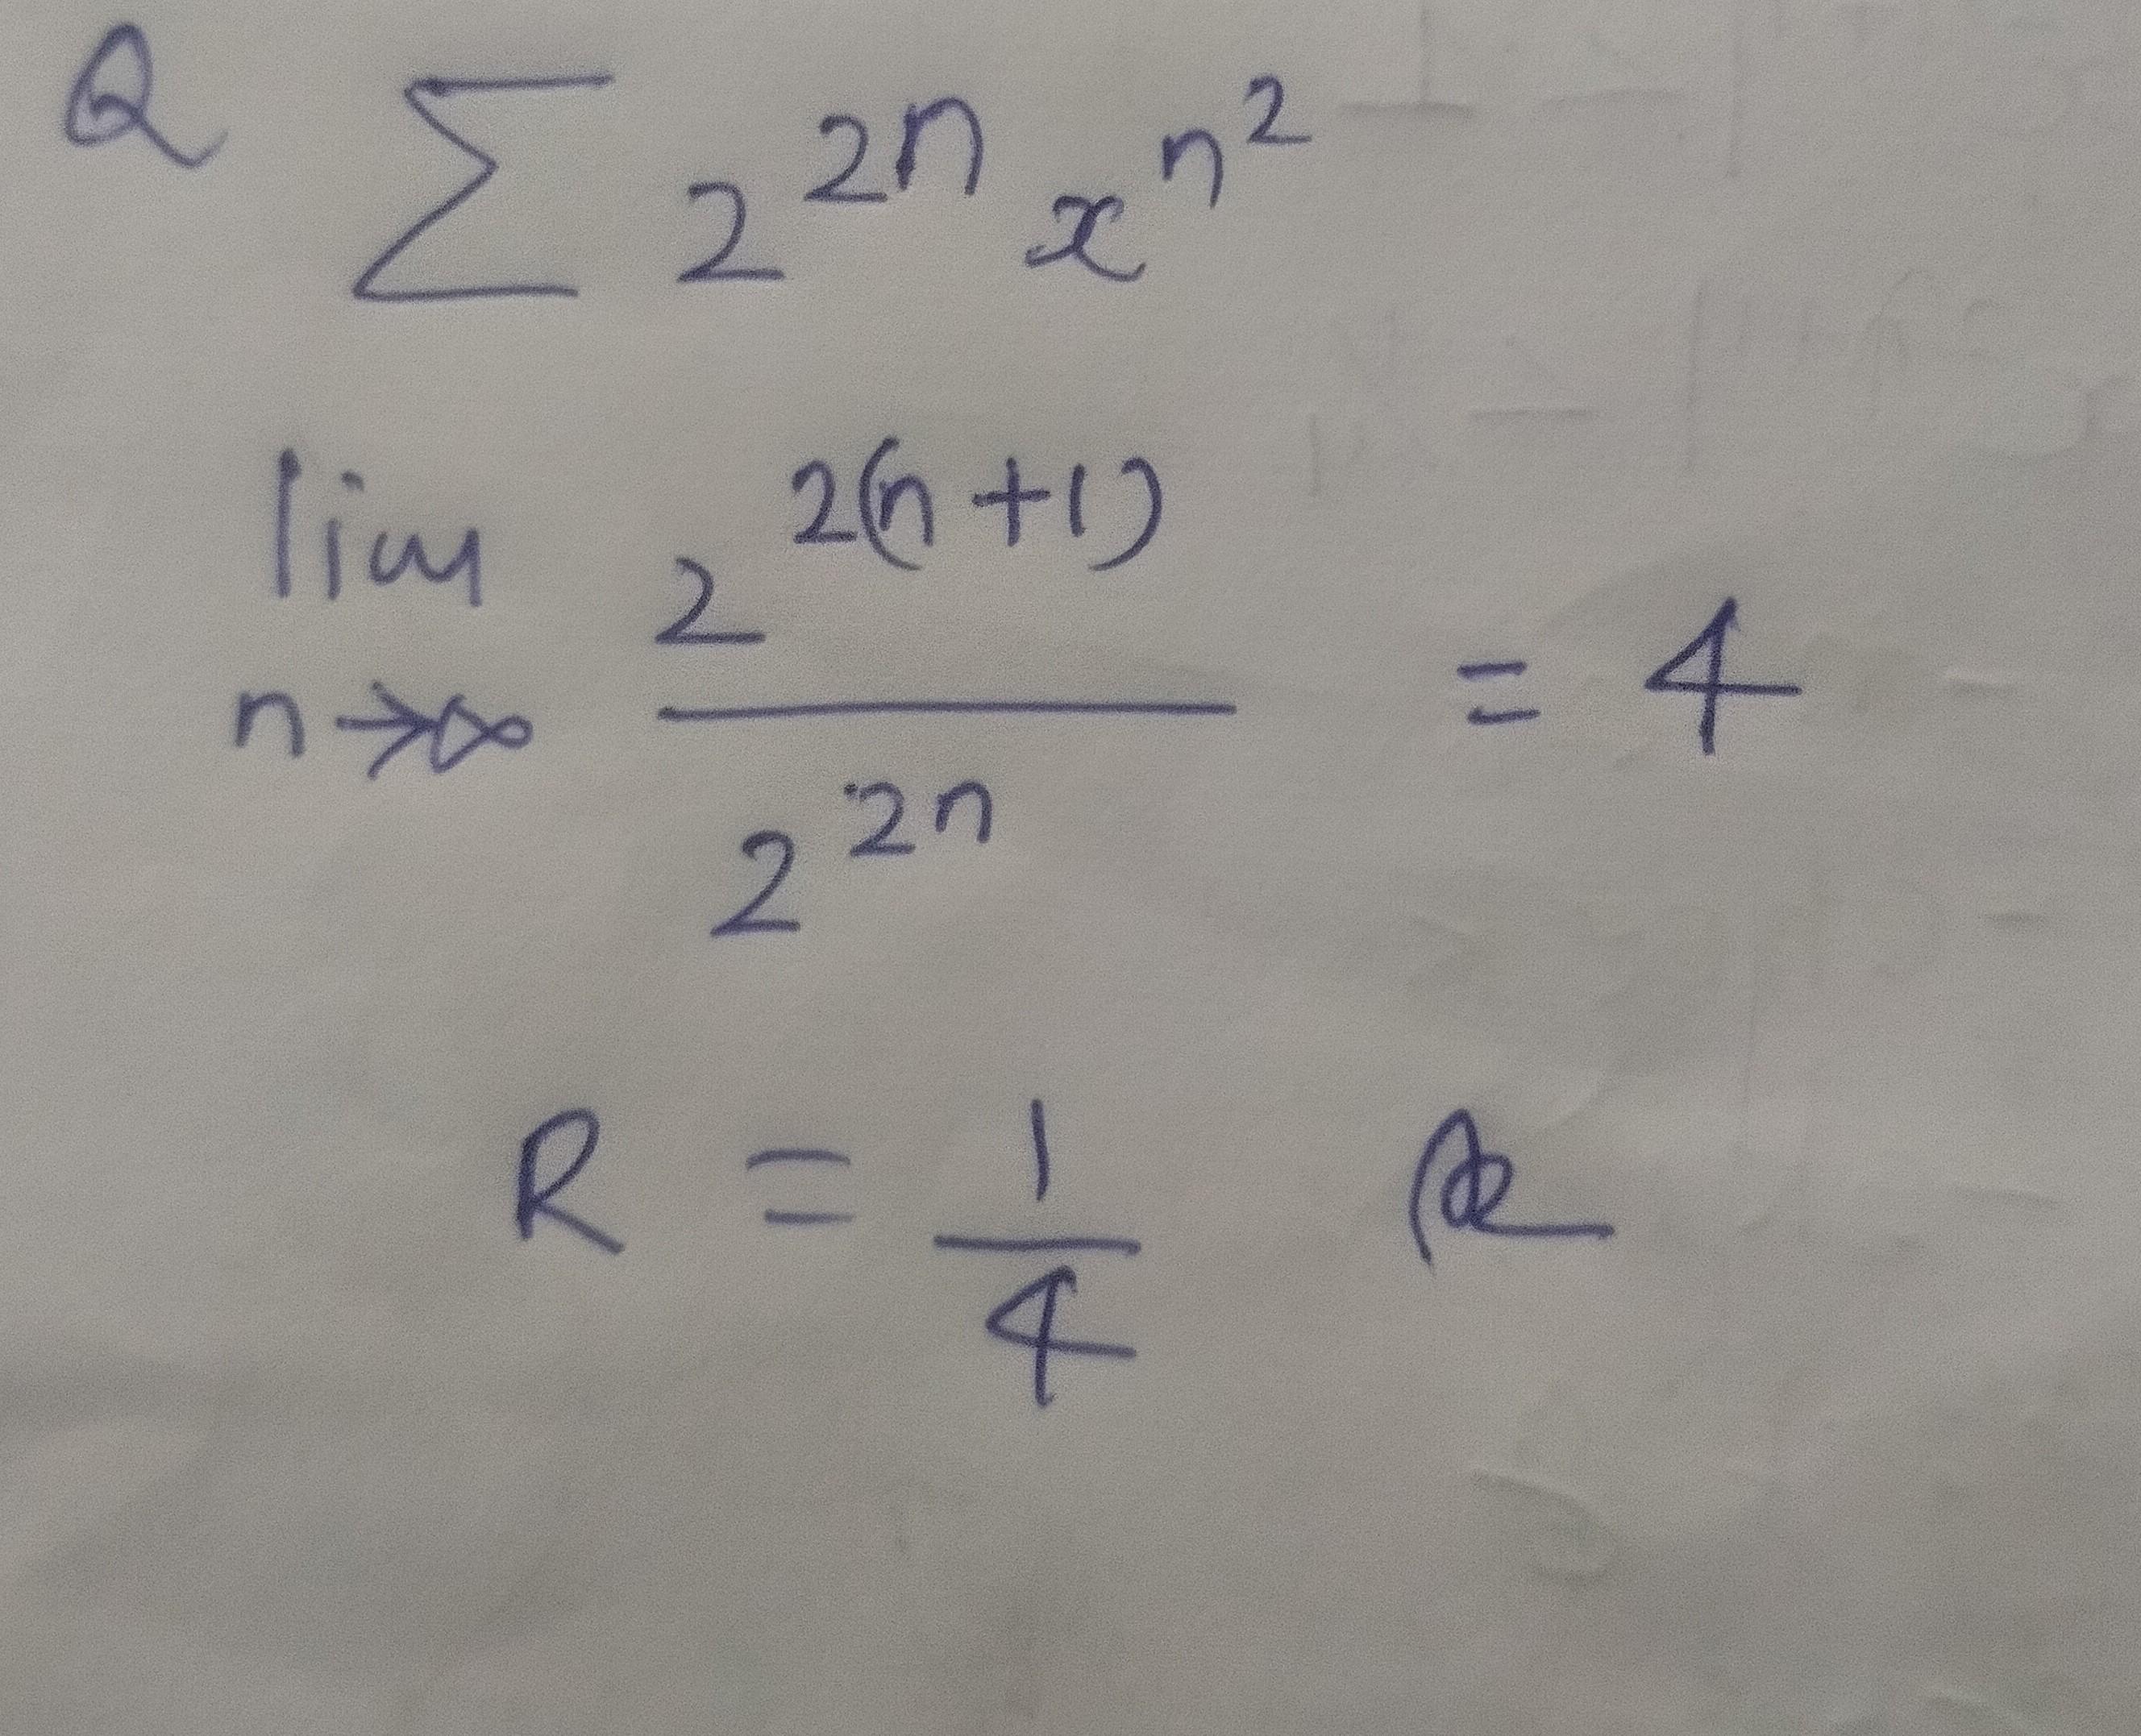 Q ∑ 2^{2n} x^{n^2}
lim_{n→∞} \frac{2^{2(n+1)}}{2^{2n}} = 4
R = \frac{1}{4}